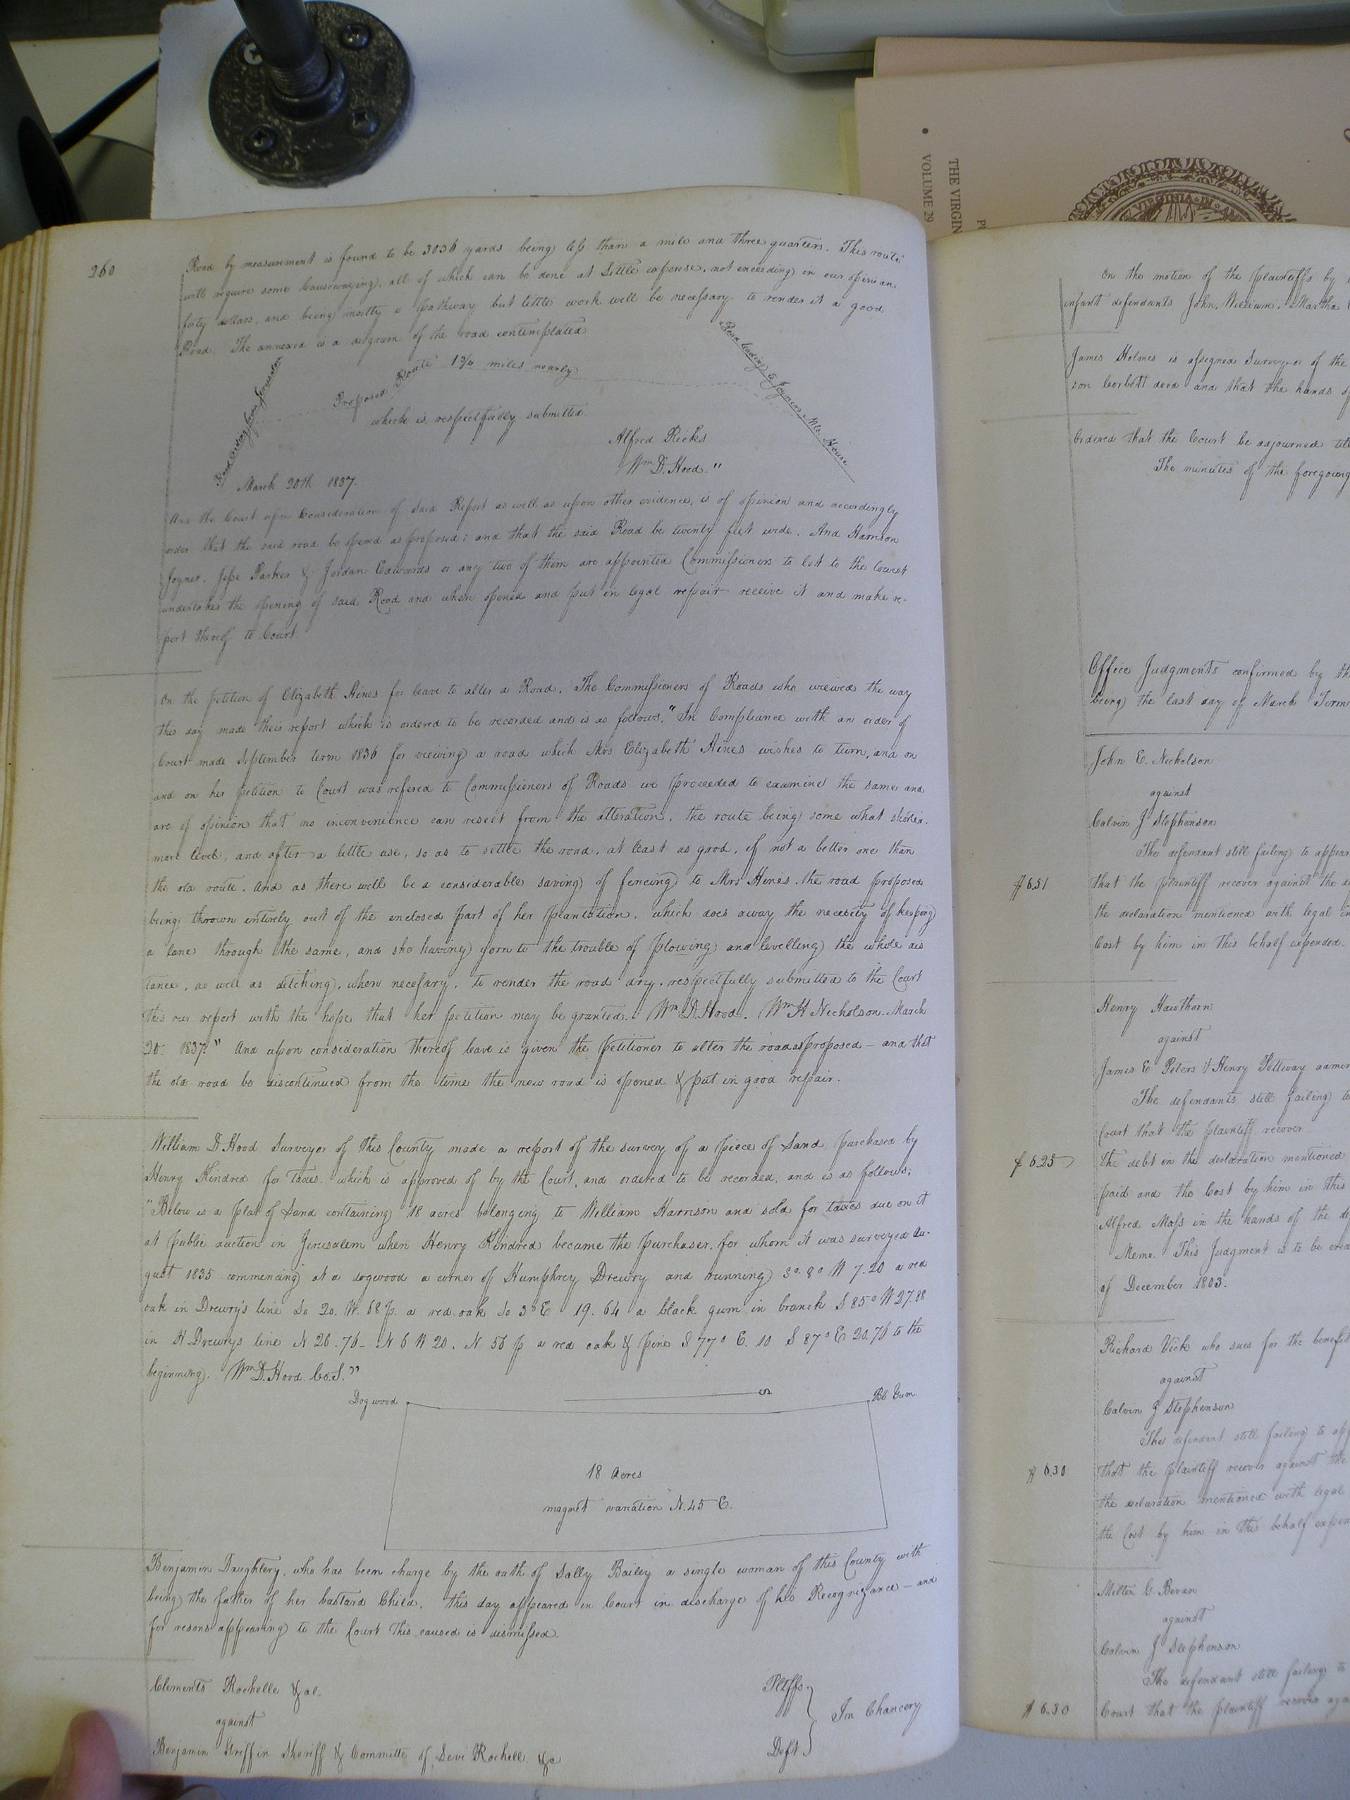 260
Road by measurement is found to be 3036 yards being less than a mile and three quarters. This route
will require some Causewaying, all of which can be done at little expense, not exceeding in our opinion,
forty dollars, and being mostly a pathway but little work will be necessary to render it a good
Road. The annexed is a diagram of the road contemplated
Road leading from Jerusalem
Proposed Route 1 3/4 miles nearly
Road leading to Joyners Mtg. House
which is respectfully submitted
Alfred Ricks
Wm D. Hood "
March 20th 1837.
And the Court upon Consideration of said Report as well as upon other evidence, is of opinion and accordingly
order that the said road be opend as proposed; and that the said Road be twenty feet wide. And Harrison
Joyner, Jesse Parker & Jordan Edwards or any two of them are appointed Commissioners to let to the lowest
undertaker the opening of said Road and when opened and put in legal repair receive it and make re-
port thereof to Court
On the petition of Elizabeth Hines for leave to alter a Road. The Commissioners of Roads who viewed the way
this day made their report which is ordered to be recorded and is as follows, "In Compliance with an order of
Court made September term 1836 for viewing a road which Mrs Elizabeth Hines wishes to turn, and on
and on her petition to Court was refered to Commissioners of Roads we proceeded to examine the same and
are of opinion that no inconvenience can result from the alteration, the route being some what shorter,
more level, and after a little use, so as to settle the road, at least as good, if not a better one than
the old route. And as there will be a considerable saving of fencing to Mrs Hines, the road proposed
being thrown entirely out of the enclosed part of her plantation, which does away the necesity of keeping
a lane through the same, and she having gorn to the trouble of plowing and levelling the whole dis
tance, as well as ditching, where necessary, to render the road dry, respectfully submitted to the Court
this our report with the hope that her petition may be granted. Wm D. Hood. Wm H Nicholson. March
20 1837." And upon consideration thereof leave is given the petitioner to alter the road as proposed — and that
the old road be discontinued from the time the new road is opened & put in good repair.
William D. Hood Surveyor of this County made a report of the survey of a piece of Land purchased by
Henry Kindred for taxes, which is approved of by the Court, and ordered to be recorded, and is as follows;
"Below is a plat of Land containing 18 acres belonging to William Harrison and sold for taxes due on it
at public auction in Jerusalem when Henry Kindred became the purchaser, for whom it was surveyed Au-
gust 1835 commencing at a dogwood a corner of Humphrey Drewry and running So. 8° W 7.20 a red
oak in Drewry's line So 20. W. 58 p. a red oak So. 3° E 19. 64 a black gum in branch S 85° W 27.88
in H Drewrys line N 20. 76 - N 6 W 20. N 56 p a red oak & pine S 77° E. 10 S 87° E 20.76 to the
beginning. Wm D. Hood. Co. S."
Dogwood
S
Bl Gum
18 Acres
magnet variation N. 45 E.
Benjamin Daughtery, who has been charge by the oath of Sally Bailey a single woman of this County with
being the father of her bastard Child, this day appeared in Court in discharge of his Recognizance — and
for resons appearing to the Court this caused is dismissed.
Clements Rochelle & al. Pltffs
against In Chancery
Benjamin Griffin Sheriff & Committe of Levi Rochell &c Deft.
THE VIRGIN
VOLUME 29
VIRGINIA IN
On the motion of the plaintiffs by
infant defendants John, William, Martha
James Holmes is assigned Surveyor of the
son Corbitt decd and that the hands of
Ordered that the Court be adjourned
The minutes of the foregoing
Office Judgments confirmed by th
being the last day of March Term
John E. Nicholson
against
Calvin J Stephenson
The defendant still failing to appear
$6.51 that the plaintiff recover against the
the declaration mentioned with legal in
Cost by him in this behalf expended.
Henry Hawthorn
against
James E Peters & Henry
The defendants still failing to
Court that the plaintiff recover
$6.25 the debt in the declaration mentioned
paid and the Cost by him in this
Alfred Moss in the hands of the
Memo. This Judgment is to be
of December 1803.
Richard Vick who sues for the benefit
against
Calvin J Stephenson
The defendant still failing to app
$6.30 that the plaintiff recover against the
the declaration mentioned with legal
the Cost by him in this behalf expen
Milton C. Bevan
against
Calvin J Stephenson
The defendant still failing to
$6.30 Court that the plaintiff recover aga